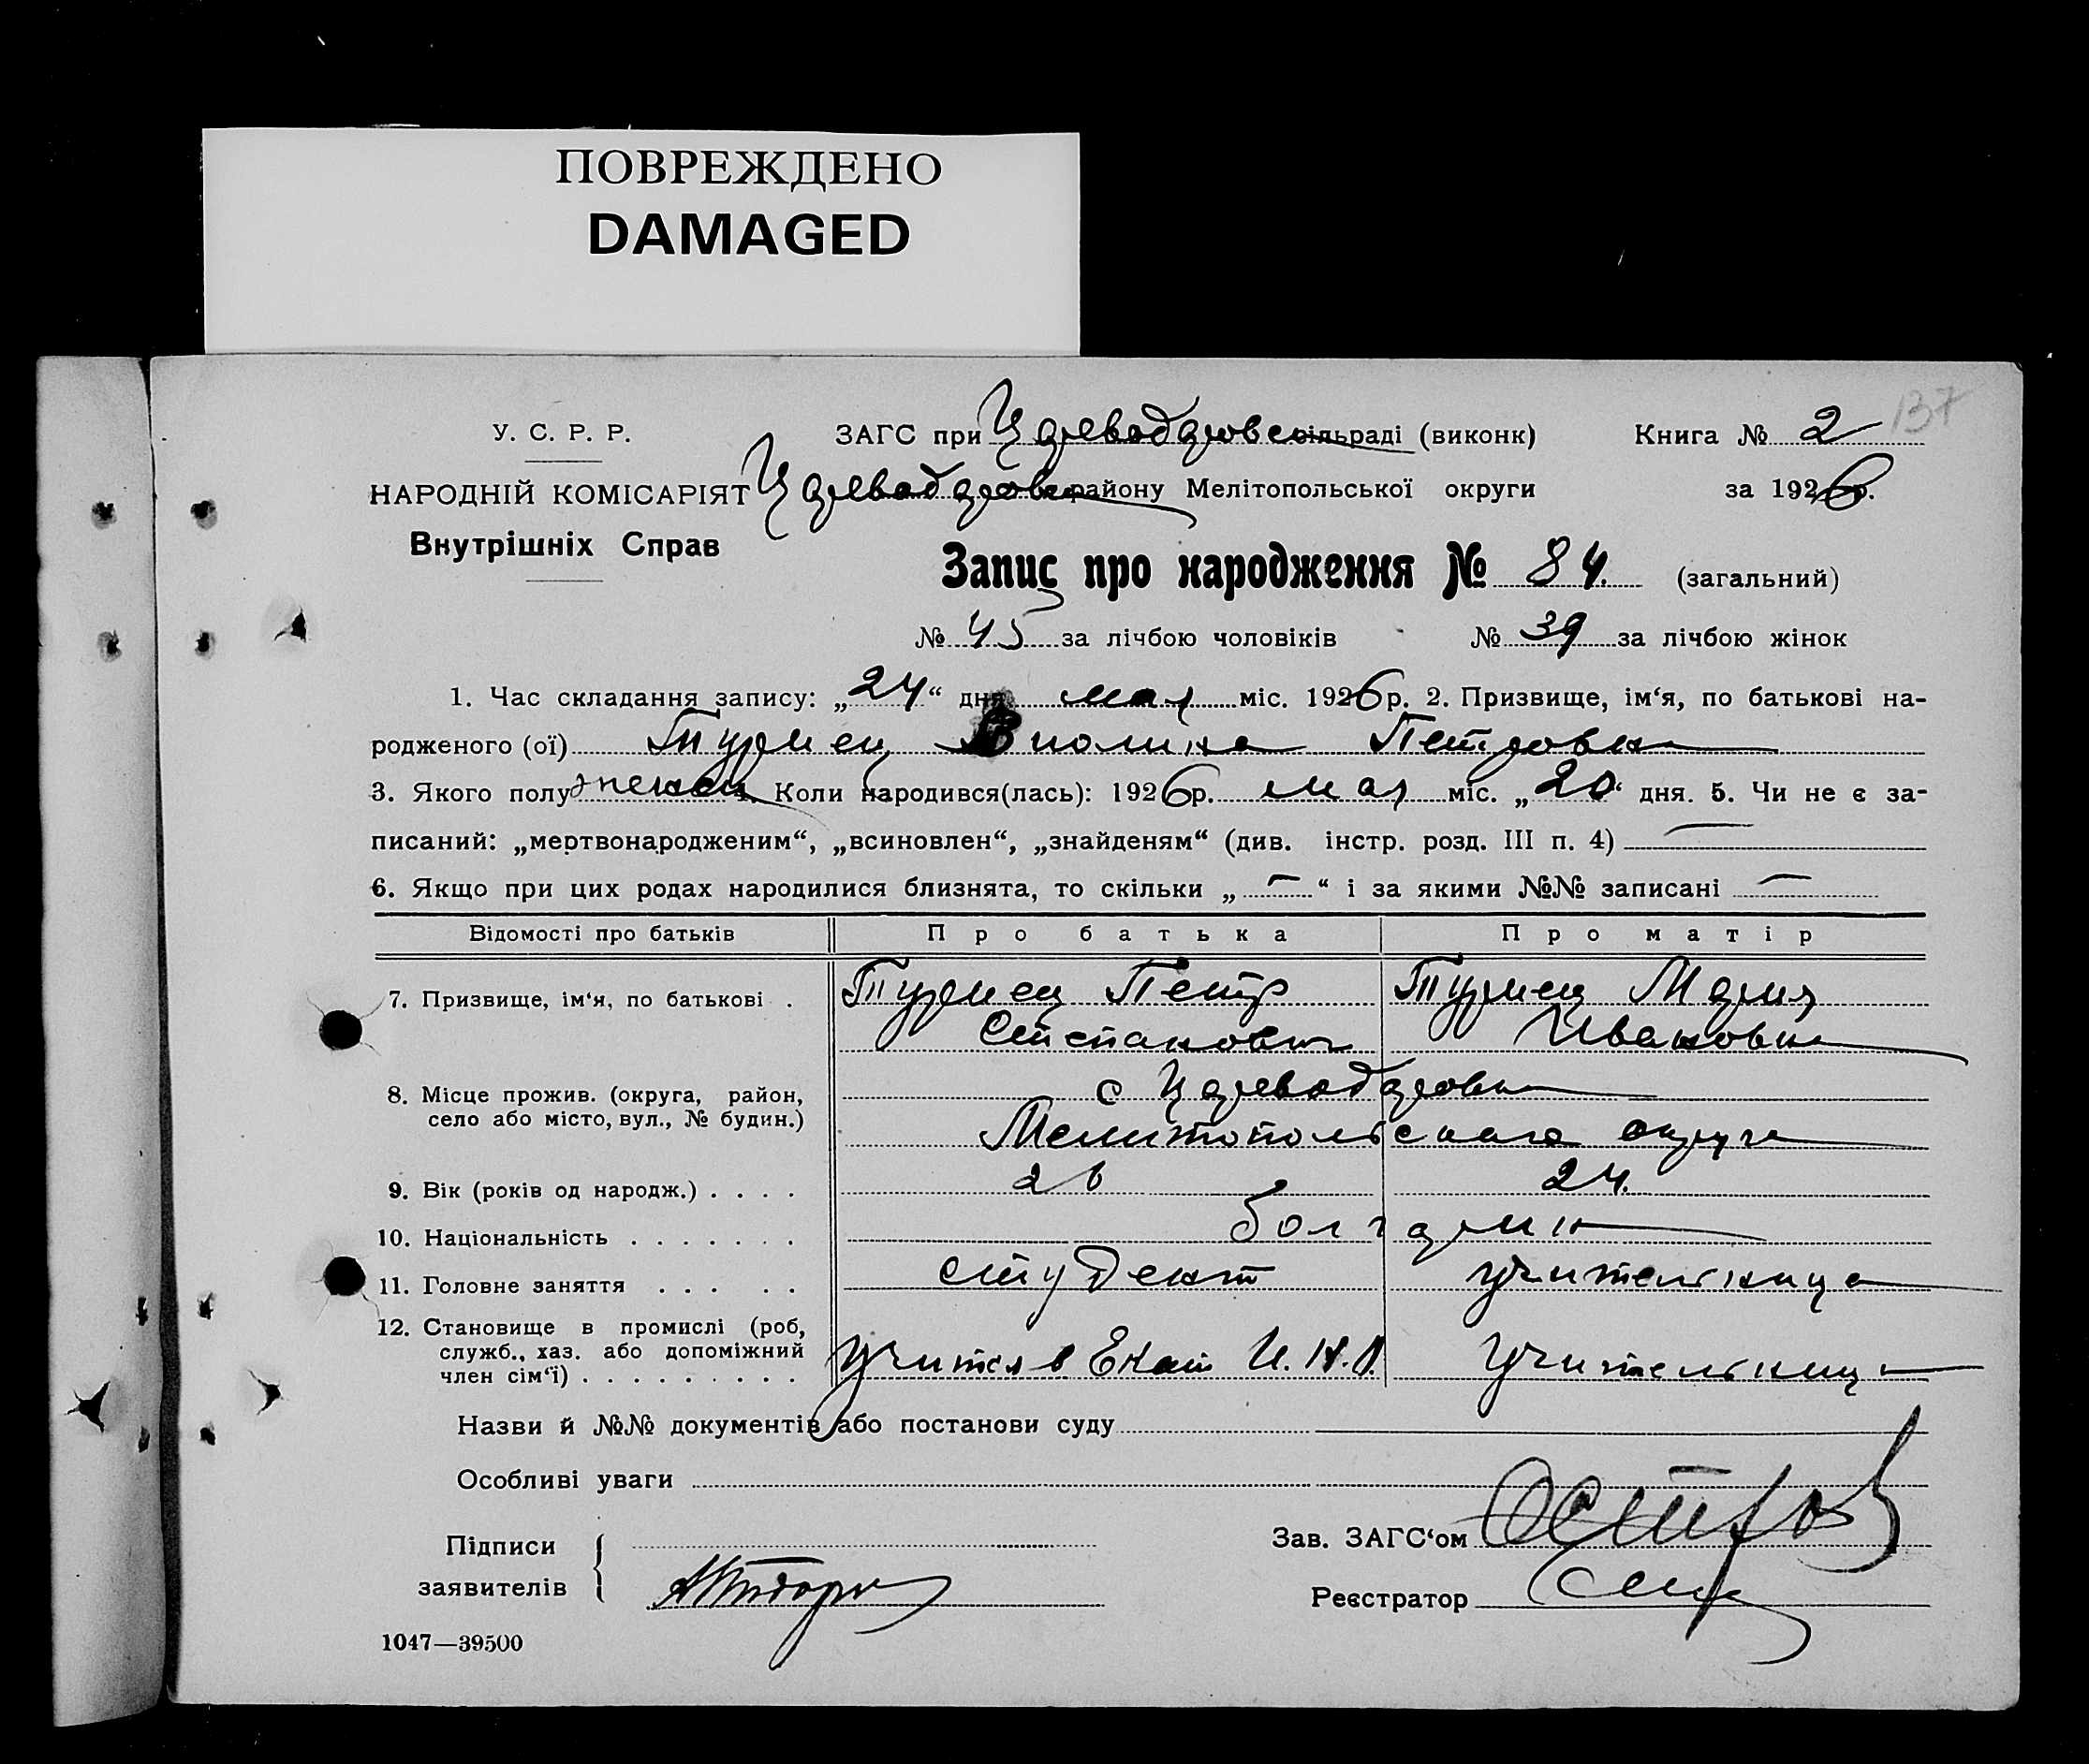 ПОВРЕЖДЕНО
DAMAGED
137
У. С. Р. Р. ЗАГС при Цареводаровск сільраді (виконк) Книга № 2
НАРОДНІЙ КОМІСАРІЯТ Цареводаровск району Мелітопольської округи за 1926 р.
Внутрішніх Справ
Запис про народження № 84. (загальний)
№ 45 за лічбою чоловіків № 39 за лічбою жінок
1. Час складання запису: „24“ дня мая міс. 1926 р. 2. Призвище, ім‘я, по батькові на-
родженого (ої) Туриец Полина Петровна
3. Якого полу женск 4. Коли народився(лась): 1926 р. мая міс. „20“ дня. 5. Чи не є за-
писаний: „мертвонародженим“, „всиновлен“, „знайденям“ (див. інстр. розд. III п. 4) —
6. Якщо при цих родах народилися близнята, то скільки „—“ і за якими №№ записані —
Відомості про батьків Про батька Про матір
7. Призвище, ім‘я, по батькові . Туриец Петр Туриец Мария
Степанович Ивановна
8. Місце прожив. (округа, район, с Цареводаровка
село або місто, вул., № будин.) Мелитопольскаго округа
9. Вік (років од народж.) . . . . 26 24.
10. Національність . . . . . . . болгарин
11. Головне заняття . . . . . студент учительница
12. Становище в промислі (роб,
служб., хаз. або допоміжний учится в Екат И. Н. О. учительница
член сім‘ї) . . . . . . . . .
Назви й №№ документів або постанови суду
Особливі уваги
Підписи Зав. ЗАГС‘ом
заявителів Реєстратор
1047—39500